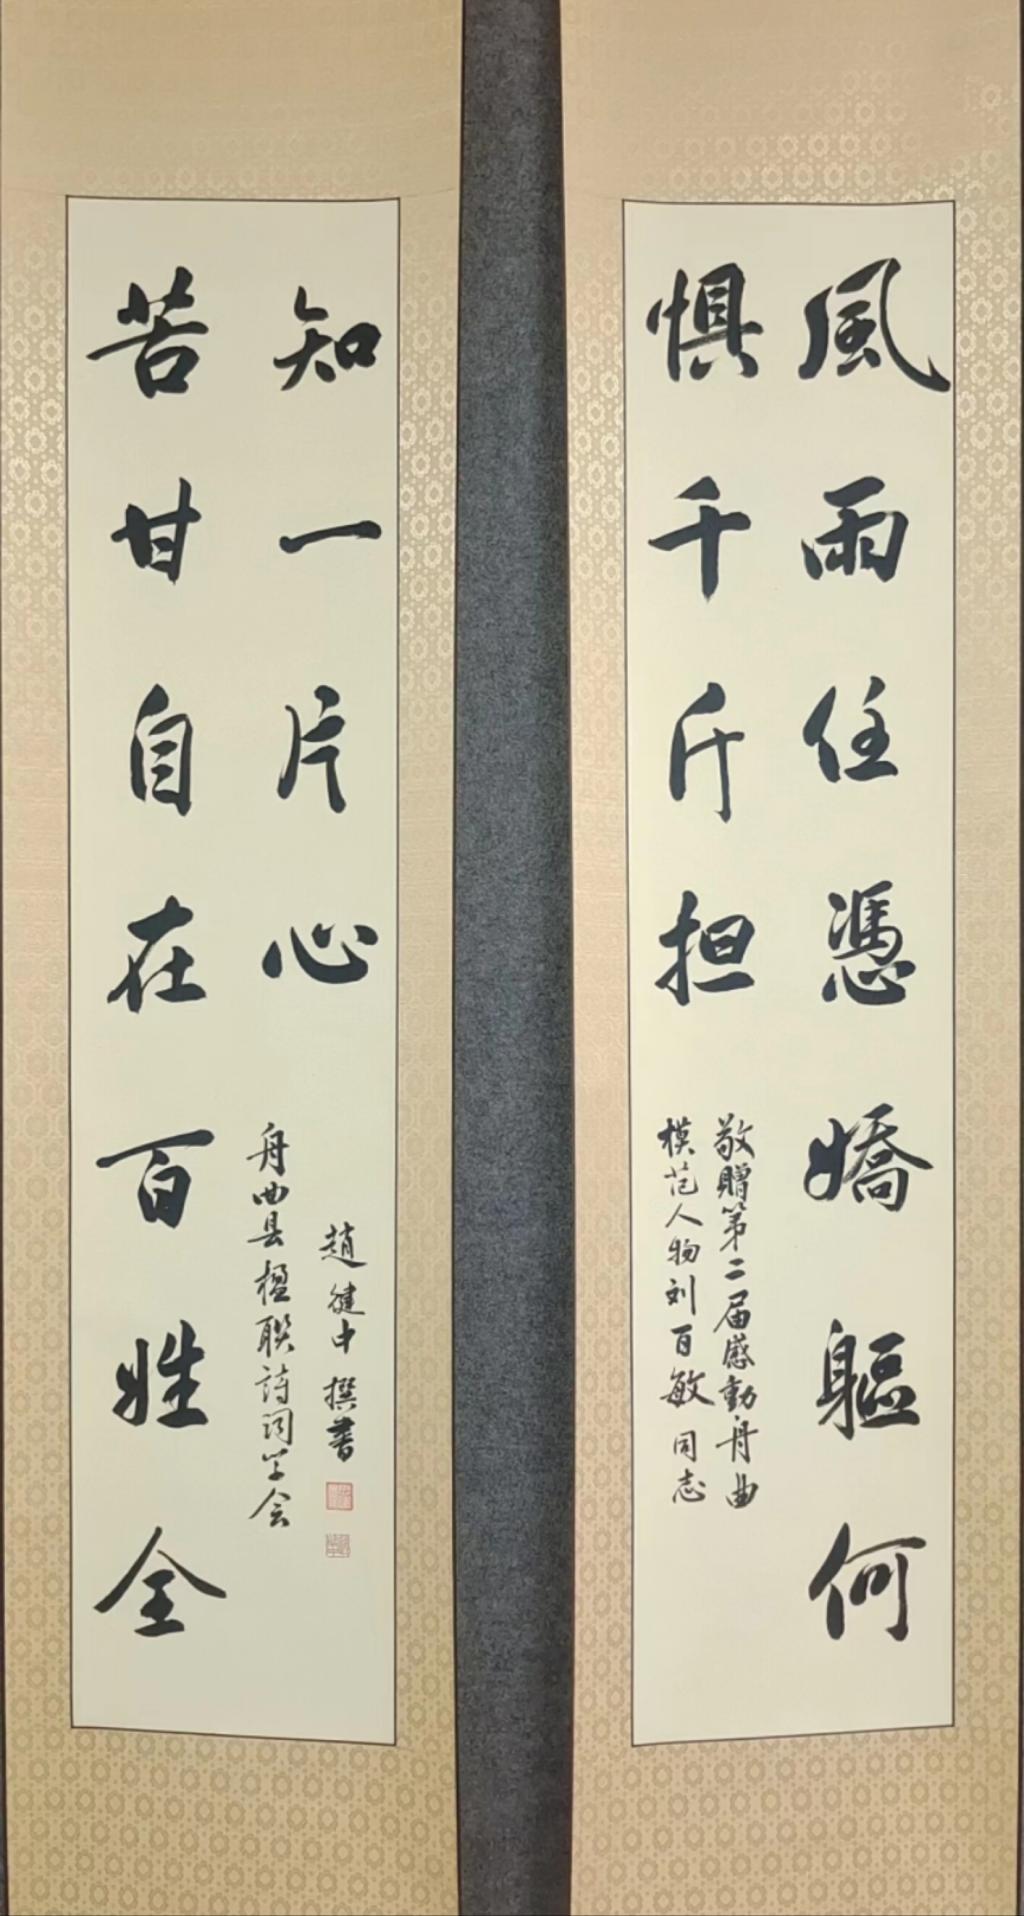 風雨任憑嬌軀何
惧千斤担
敬贈第二届感動舟曲
模范人物刘百敏同志
苦甘自在百姓全
知一片心
舟曲县楹联詩词学会
趙健中撰書